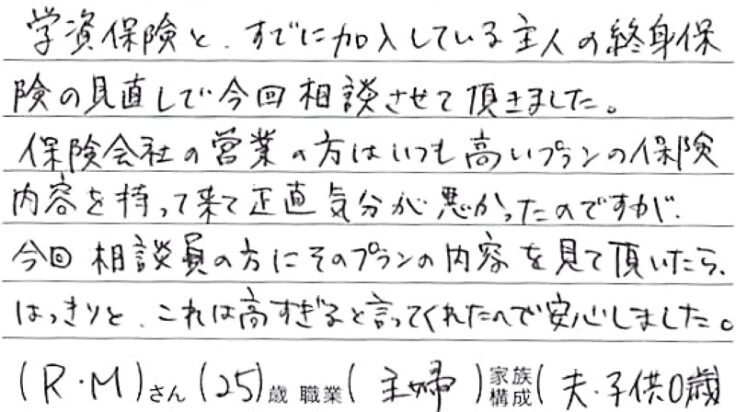 学資保険と、すでに加入している主人の終身保
険の見直しで今回相談させて頂きました。
保険会社の営業の方はいつも高いプランの保険
内容を持って来て正直気分が悪かったのですが、
今回相談員の方にそのプランの内容を見て頂いたら、
はっきりと、これは高すぎると言ってくれたので安心しました。
(R・M)さん(25)歳 職業(主婦)家族構成(夫・子供0歳